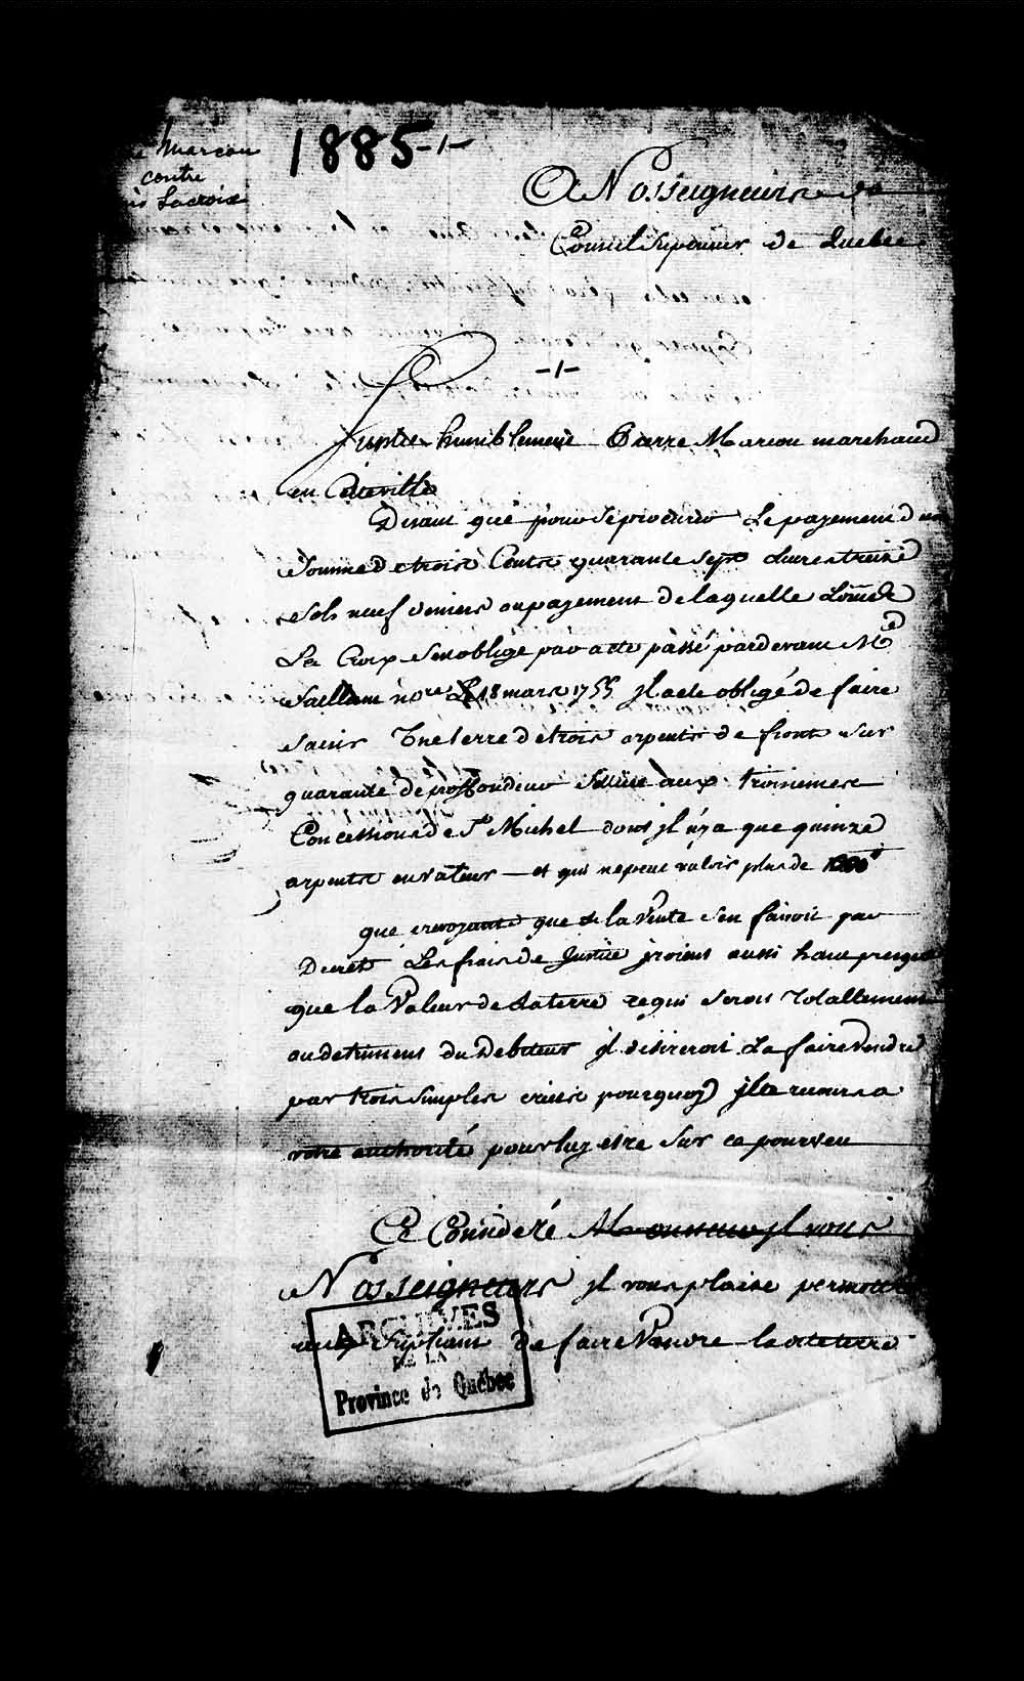 Marcou
contre
Lacroix
1885 -1-
A Nosseigneurs du
Conseil Superieur de Quebec
-1-
Suplie humblement Pierre Marcou marchand
en Cette ville
Disant que pour se procurer Le payement d'une
Somme de trois Cents quarante sept Livres treize
Sols neuf deniers au payement de laquelle Louis de
La Croix s'est obligé par acte passé pardevant Me
Saillant nore Le 18 mars 1755 il a eté obligé de faire
Saisir Une terre de trois arpents de front sur
quarante de proffondeur Scituée aux troisiemes
Concessions de St Michel dont il n'y a que quinze
arpents en valeur — et qui ne peut valoir plus de
que croyant que si la Vente s'en faisoit par
Decret Les frais de Justice iroient aussi haut presque
que la Valeur de La terre ce qui seroit Totallement
au detriment du Debiteur il desireroit La faire Vendre
par trois simples criées pourquoy il a recours a
votre authorité pour luy etre sur ce pourveu
Ce Consideré il vous
Nosseigneurs il vous plaise permettre
au Supliant de faire Vendre la dite terre
ARCHIVES
DE LA
Province de Québec